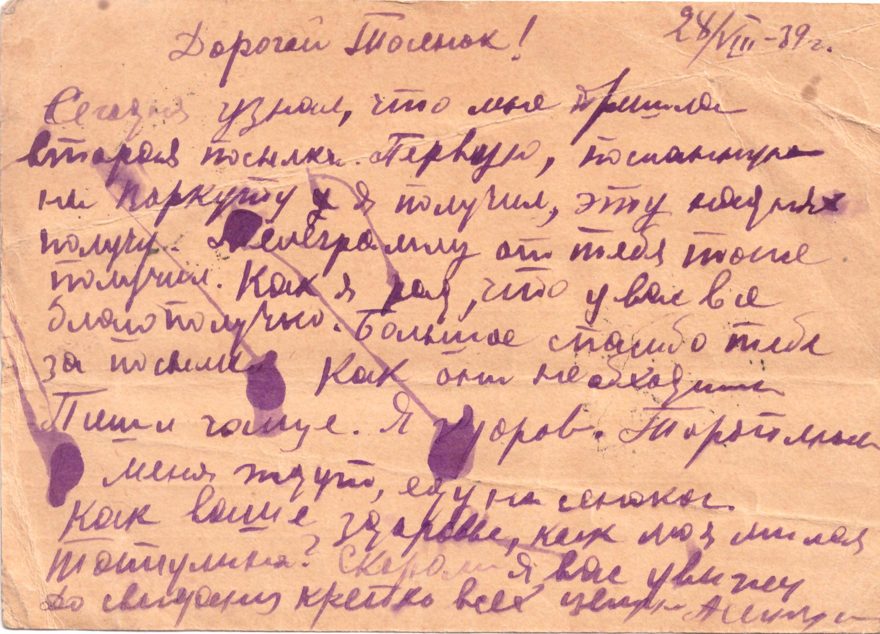 28/VIII-39 г.
Дорогой Толенок!
Сегодня узнал, что мне пришла
вторая посылка. Первую, посланную
на Воркуту я получил, эту на днях
получу. Телеграмму от тебя тоже
получил. Как я рад, что у вас все
благополучно. Большое спасибо тебе
за посылки Как они необходимы
Пиши чаще. Я здоров. Тороплюсь
меня ждут, еду на сенокос.
Как ваше здоровье, как моя милая
Татулина? Скоро ли я вас увижу
До свидания крепко всех целую